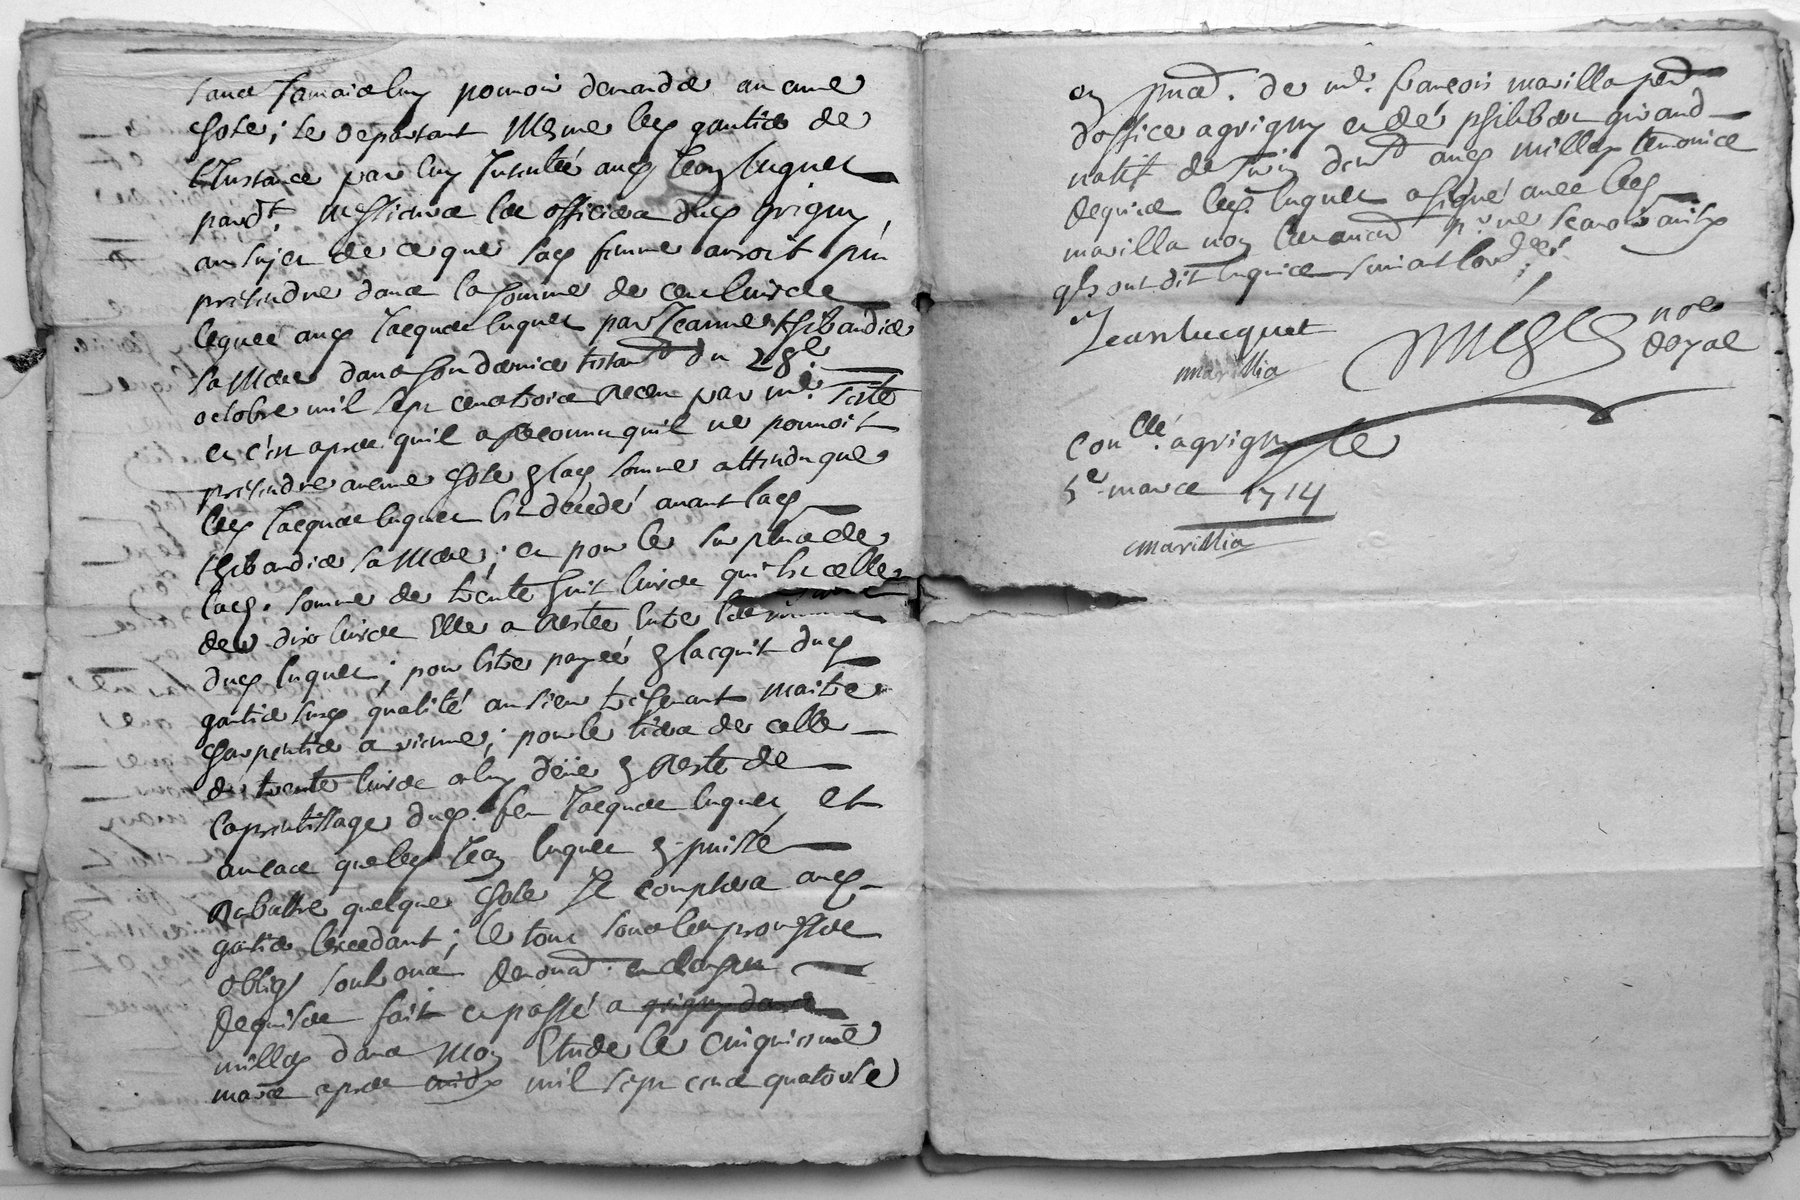 sans Jamais luy pouvoir demander aucune
chose; se departant Mesme led gautier de
L'Instance par luy Intentée aud Jean luquet
pardt. Messieurs les officiers dud grigny,
au sujet de ce que sad femme auroit pu
pretendre dans la somme de cent livres
leguée aud Jacques luquet par Jeanne thibaudier
sa Mere dans son dernier testamt du 28e
octobre mil sept cens trois Receu par me. Teste
et c'est apres quil a Reconnu quil ne pouvoit
pretendre aucune chose en lad somme attendu que
led Jacques luquet est décédé avant lad
thibaudier sa Mere; et pour le surplus de
lad. somme de trente huit livres qui est celle
de dix livres Elle a Restée Entre les mains
dud luquet; pour Estre payée en lacquit dud
gautier susd qualité au sieur maitre
charpentier a vienne; pour le tiers de celle
de trente livres a luy deüe en Reste de
laprentissage dud. feu Jacques luquet, et
au cas que led Jean luquet en puisse
Rabattre quelque chose Il comptera aud
gautier l'excedant; le tout sous les promesses
oblign soub ons Renond. et clauses
Requises fait et passé a grigny dans
millery dans Mon Etude le Cinquiesme
mars apres midy mil sept cens quatorse
en pnce. de me. françois marillia pr
d'office a grigny et de philibert giraud
natif de demt aud millery temoins
Requis led. luquet a signé avec led
marillia non les autres pr. ne scavoir ainsy
qls ont dit Enquis suivant lordce.
Jean lucquet
marillia
nore
Royal
Conllé. a grigny le
5e mars 1714
marillia